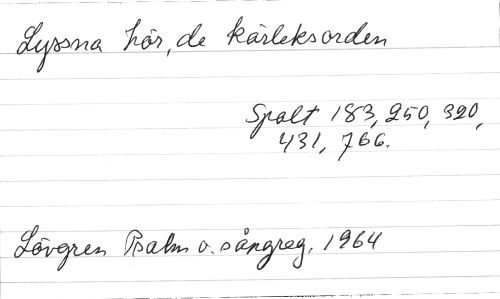 Lyssna hör, de kärleksorden
Spalt 183, 250, 320,
431, 766.
Lövgren Psalm o. sångreg. 1964